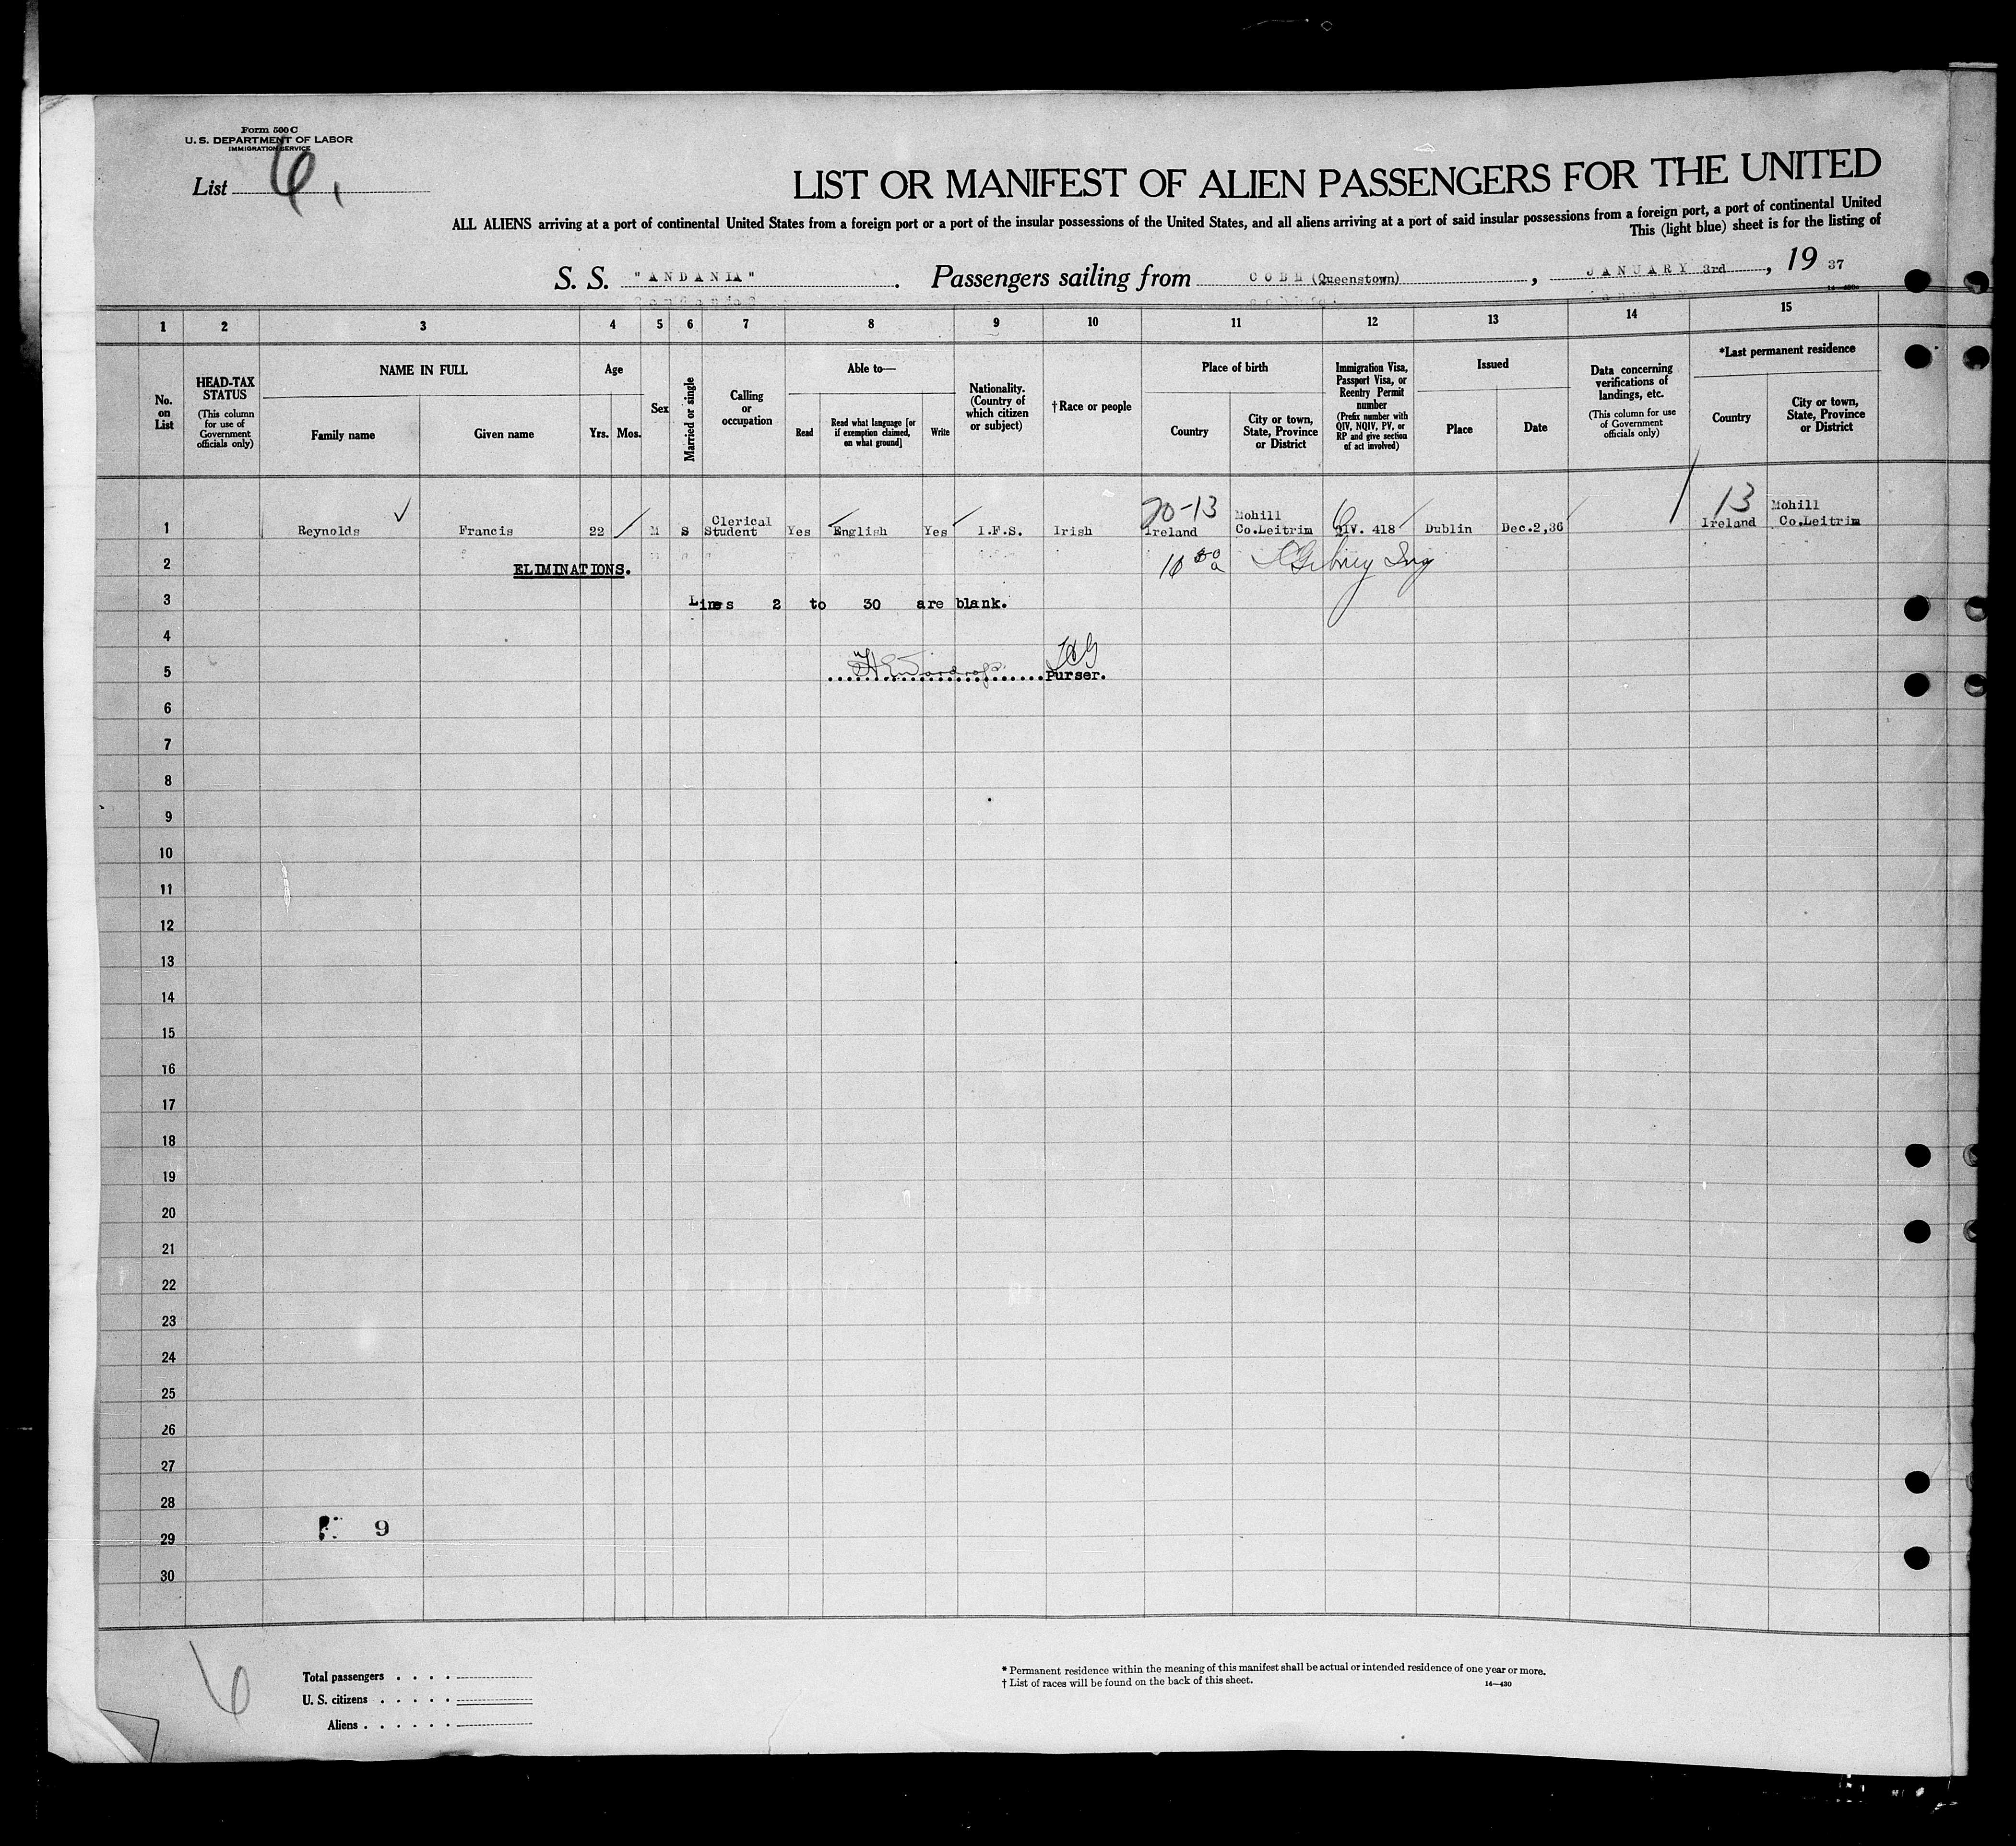 Form 500 C
U. S. DEPARTMENT OF LABOR
IMMIGRATION SERVICE
List 6.
LIST OR MANIFEST OF ALIEN PASSENGERS FOR THE UNITED
ALL ALIENS arriving at a port of continental United States from a foreign port or a port of the insular possessions of the United States, and all aliens arriving at a port of said insular possessions from a foreign port, a port of continental United
This (light blue) sheet is for the listing of
S. S. "ANDANIA" . Passengers sailing from COBH (Queenstown) , JANUARY 3rd , 19 37
1 2 3 4 5 6 7 8 9 10 11 12 13 14 15
No. on List
HEAD-TAX STATUS
(This column for use of Government officials only)
NAME IN FULL
Family name
Given name
Age
Yrs. Mos.
Sex
Married or single
Calling or occupation
Able to—
Read
Read what language [or if exemption claimed, on what ground]
Write
Nationality. (Country of which citizen or subject)
†Race or people
Place of birth
Country
City or town, State, Province or District
Immigration Visa, Passport Visa, or Reentry Permit number
(Prefix number with QIV, NQIV, PV, or RP and give section of act involved)
Issued
Place
Date
Data concerning verifications of landings, etc.
(This column for use of Government officials only)
*Last permanent residence
Country
City or town, State, Province or District
20-13 13
1 Reynolds Francis 22 M S Clerical Student Yes English Yes I.F.S. Irish Ireland Mohill Co.Leitrim QIV. 418 Dublin Dec.2,36 Ireland Mohill Co.Leitrim
2 ELIMINATIONS.
3 Lines 2 to 30 are blank.
4
5 Purser.
6
7
8
9
10
11
12
13
14
15
16
17
18
19
20
21
22
23
24
25
26
27
28
9
29
30
6
Total passengers . . . .
U. S. citizens . . . . .
Aliens . . . . . .
* Permanent residence within the meaning of this manifest shall be actual or intended residence of one year or more.
† List of races will be found on the back of this sheet.
14—430